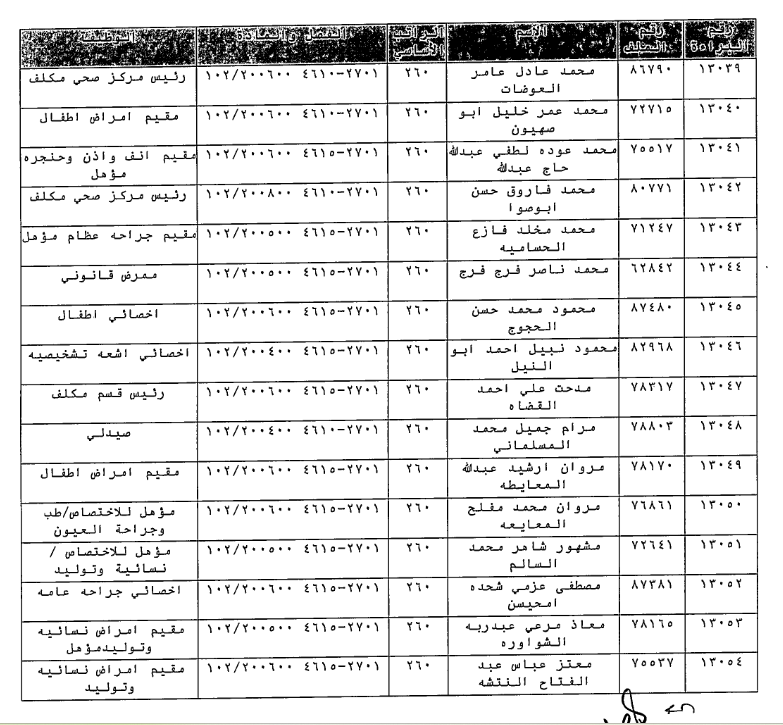 رقم البراءة | رقم الملف | الإسم | الراتب الأساسي | الفصل والمادة | الوظيفة
١٣٠٣٩ | ٨٦٧٩٠ | محمد عادل عامر العوضات | ٢٦٠ | ٢٧٠١-٤٦١٠ ١٠٢/٢٠٠٦٠٠ | رئيس مركز صحي مكلف
١٣٠٤٠ | ٧٢٧١٥ | محمد عمر خليل ابو صهيون | ٢٦٠ | ٢٧٠١-٤٦١٥ ١٠٢/٢٠٠٦٠٠ | مقيم امراض اطفال
١٣٠٤١ | ٧٥٥١٧ | محمد عوده لطفي عبدالله حاج عبدالله | ٢٦٠ | ٢٧٠١-٤٦١٥ ١٠٢/٢٠٠٦٠٠ | مقيم انف واذن وحنجره مؤهل
١٣٠٤٢ | ٨٠٧٧١ | محمد فاروق حسن ابوصوا | ٢٦٠ | ٢٧٠١-٤٦١٠ ١٠٢/٢٠٠٨٠٠ | رئيس مركز صحي مكلف
١٣٠٤٣ | ٧١٢٤٧ | محمد مخلد فازع الحساميه | ٢٦٠ | ٢٧٠١-٤٦١٥ ١٠٢/٢٠٠٥٠٠ | مقيم جراحه عظام مؤهل
١٣٠٤٤ | ٦٢٨٤٢ | محمد ناصر فرج فرج | ٢٦٠ | ٢٧٠١-٤٦١٥ ١٠٢/٢٠٠٥٠٠ | ممرض قانوني
١٣٠٤٥ | ٨٧٤٨٠ | محمود محمد حسن الحجوج | ٢٦٠ | ٢٧٠١-٤٦١٥ ١٠٢/٢٠٠٦٠٠ | اخصائي اطفال
١٣٠٤٦ | ٨٢٩٦٨ | محمود نبيل احمد ابو النيل | ٢٦٠ | ٢٧٠١-٤٦١٥ ١٠٢/٢٠٠٤٠٠ | اخصائي اشعه تشخيصيه
١٣٠٤٧ | ٧٨٣١٧ | مدحت علي احمد القضاه | ٢٦٠ | ٢٧٠١-٤٦١٥ ١٠٢/٢٠٠٦٠٠ | رئيس قسم مكلف
١٣٠٤٨ | ٧٨٨٠٣ | مرام جميل محمد المسلماني | ٢٦٠ | ٢٧٠١-٤٦١٥ ١٠٢/٢٠٠٤٠٠ | صيدلي
١٣٠٤٩ | ٧٨١٧٠ | مروان ارشيد عبدالله المعايطه | ٢٦٠ | ٢٧٠١-٤٦١٥ ١٠٢/٢٠٠٦٠٠ | مقيم امراض اطفال
١٣٠٥٠ | ٧٦٨٦١ | مروان محمد مفلح المعايعه | ٢٦٠ | ٢٧٠١-٤٦١٥ ١٠٢/٢٠٠٦٠٠ | مؤهل للاختصاص/طب وجراحة العيون
١٣٠٥١ | ٧٢٦٤١ | مشهور شاهر محمد السالم | ٢٦٠ | ٢٧٠١-٤٦١٥ ١٠٢/٢٠٠٥٠٠ | مؤهل للاختصاص / نسائية وتوليد
١٣٠٥٢ | ٨٧٣٨١ | مصطفى عزمي شحده امحيسن | ٢٦٠ | ٢٧٠١-٤٦١٥ ١٠٢/٢٠٠٦٠٠ | اخصائي جراحه عامه
١٣٠٥٣ | ٧٨١٦٥ | معاذ مرعي عبدربه الشواوره | ٢٦٠ | ٢٧٠١-٤٦١٥ ١٠٢/٢٠٠٥٠٠ | مقيم امراض نسائيه وتوليدمؤهل
١٣٠٥٤ | ٧٥٥٣٧ | معتز عباس عبد الفتاح النتشه | ٢٦٠ | ٢٧٠١-٤٦١٥ ١٠٢/٢٠٠٦٠٠ | مقيم امراض نسائيه وتوليد